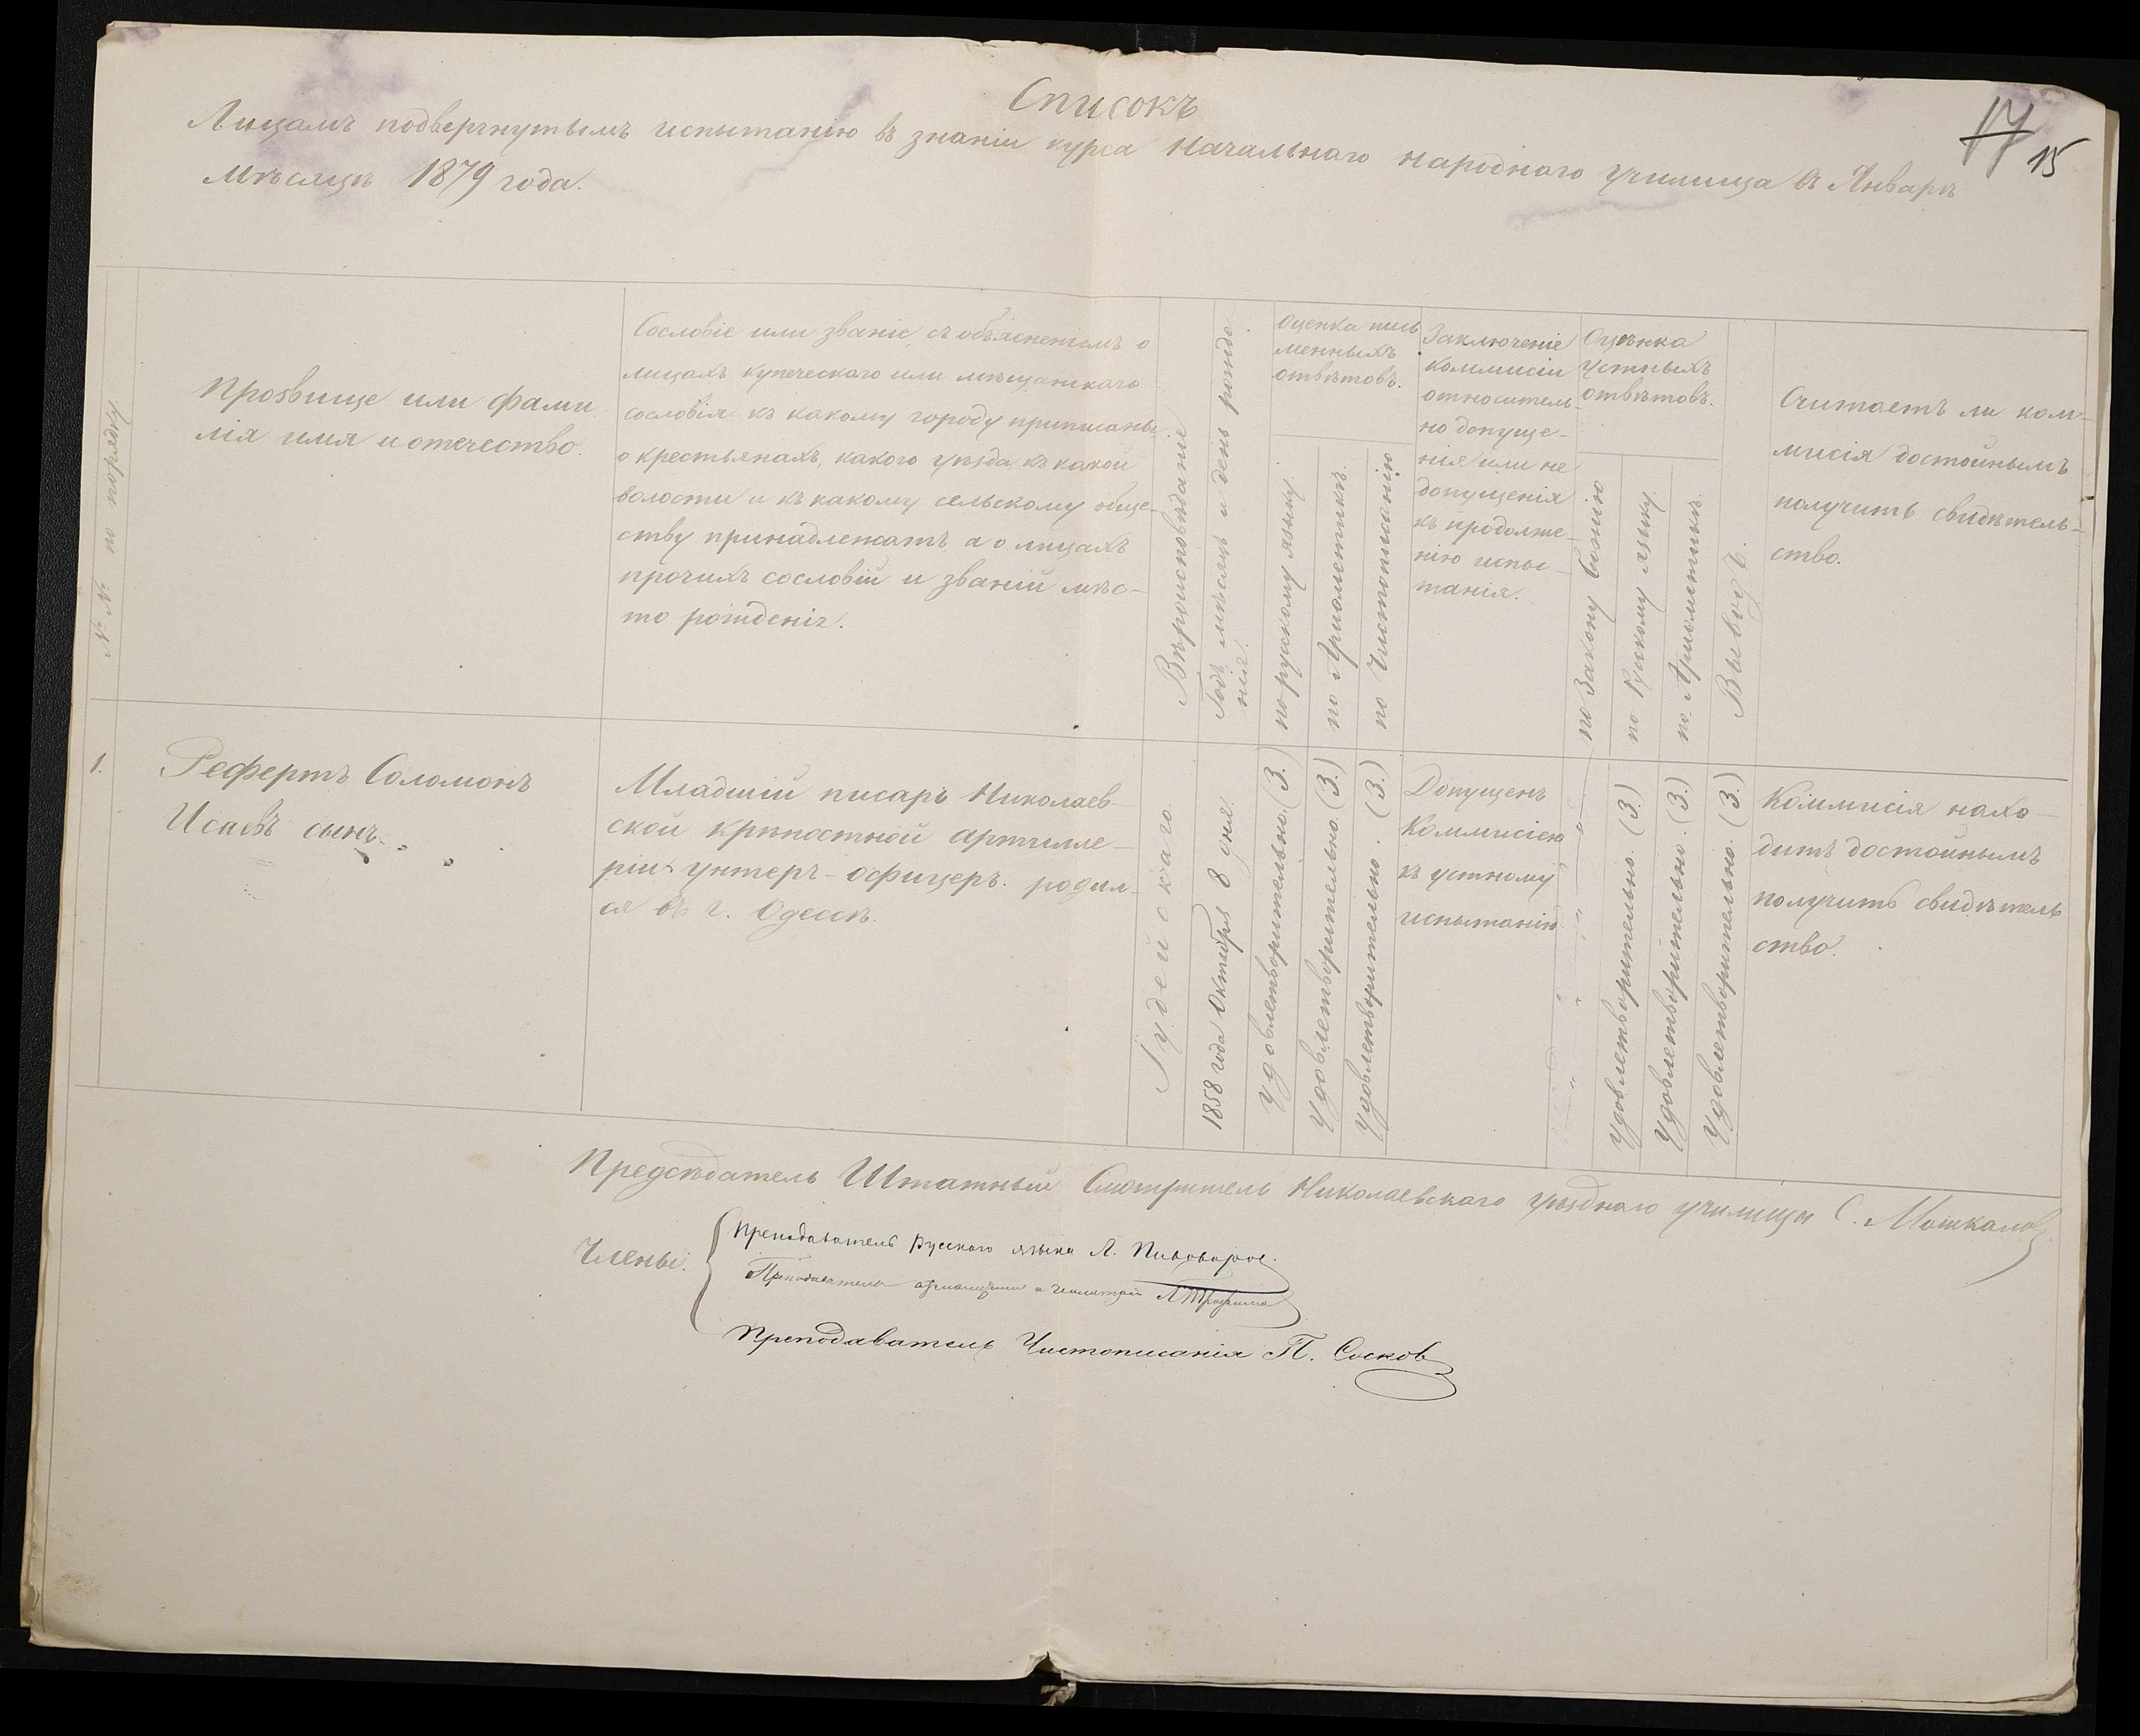 Списокъ
17 15
Лицамъ подвергнутымъ испытанію въ знаніи курса Начальнаго народнаго училища въ Январѣ
мѣсяцѣ 1879 года.
№ № по порядку.
Прозвище или фами
лія имя и отчество.
Сословіе или званіе, съ объясненіемъ о
лицахъ купеческаго или мѣщанскаго
сословія къ какому городу приписаны
о крестьянахъ, какого уѣзда, къ какой
волости и къ какому сельскому обще-
ству принадлежатъ, а о лицахъ
прочихъ сословій и званій мѣс-
то рожденія.
Вѣроисповѣданіе
Годъ мѣсяцъ и день рожде-
нія.
Оценка пись
менныхъ
отвѣтовъ.
по русскому языку.
по Ариѳметикѣ.
по Чистописанію
Заключеніе
коммисіи
относитель-
но допуще-
нія или не
допущенія
къ продолже-
нію испы-
танія.
Оцѣнка
устныхъ
отвѣтовъ.
по Закону Божію
по Русскому языку.
по Ариѳметикѣ.
Выводъ.
Считаетъ ли ком-
мисія достойнымъ
получить свидѣтель-
ство.
1.
Рефертъ Соломонъ
Исаевъ сынъ.
Младшій писарь Николаев-
ской крѣпостной артилле-
ріи унтеръ-офицеръ. родил-
ся въ г. Одессѣ.
Іудейскаго
1858 года Октября 8 дня.
Удовлетворительно. (3.)
Удовлетворительно. (3.)
Удовлетворительно. (3.)
Допущенъ
Коммисіею
къ устному
испытанію
Удовлетворительно. (3.)
Удовлетворительно. (3.)
Удовлетворительно. (3.)
Коммисія нахо-
дитъ достойнымъ
получить свидѣтель
ство.
Предсѣдатель Штатный Смотритель Николаевскаго уѣзднаго училища С. Мошкалов
Члены:
Преподаватель Русскаго языка Л. Пивоваров.
Преподаватель и
Преподаватель Чистописанія П. Сосков